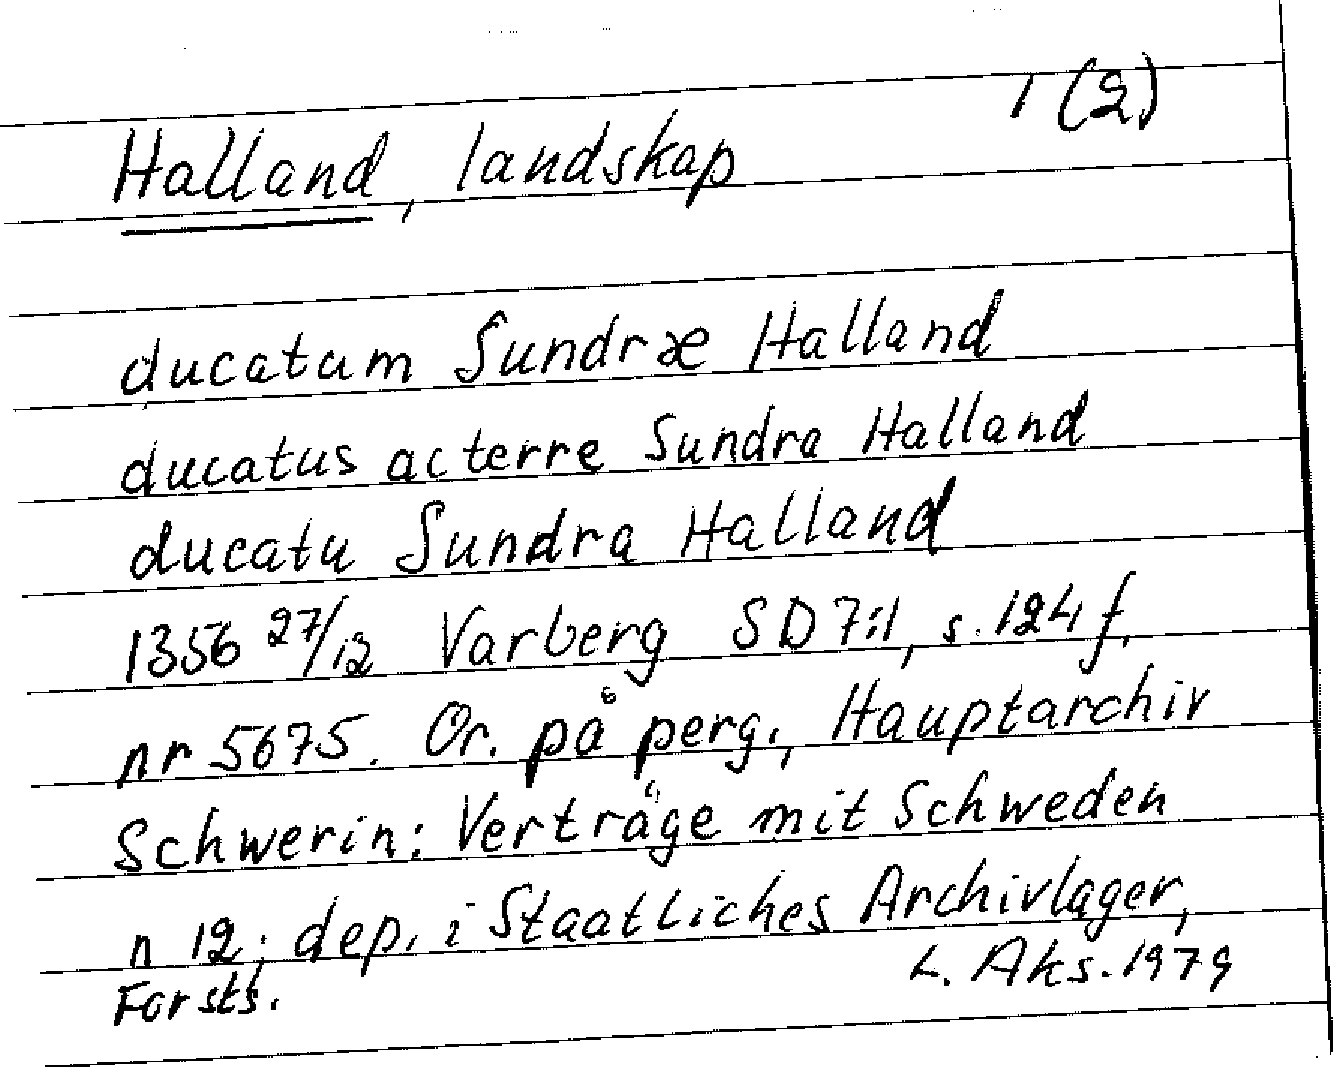 1 (2)
Halland, landskap
ducatum Sundræ Halland
ducatus ac terre Sundra Halland
ducatu Sundra Halland
1356 27/12 Varberg SD 7:1, s. 124 f.
nr 5675. Or. på perg., Hauptarchiv
Schwerin: Verträge mit Schweden
n 12; dep. i Staatliches Archivlager,
Forsts.
L. Aks. 1979